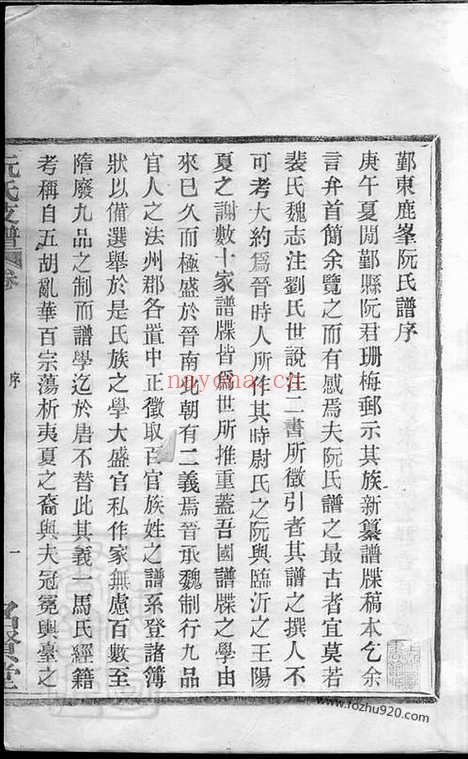 鄞東鹿峯阮氏譜序
庚午夏閒鄞縣阮君珊梅郵示其族新纂譜牒稿本乞余
言弁首簡余覽之而有感焉夫阮氏譜之最古者宜莫若
裴氏魏志注劉氏世說注二書所徵引者其譜之撰人不
可考大約爲晉時人所作其時尉氏之阮與臨沂之王陽
夏之謝數十家譜牒皆爲世所推重蓋吾國譜牒之學由
來已久而極盛於晉南北朝有二義焉晉承魏制行九品
官人之法州郡各置中正徵取百官族姓之譜系登諸簿
狀以備選舉於是氏族之學大盛官私作家無慮百數至
隋廢九品之制而譜學迄於唐不替此其義一馬氏經籍
考稱自五胡亂華百宗蕩析夷夏之裔與夫冠冕輿臺之
阮氏支譜
卷
序
一
名賢堂
nayona.cn
www.fozhu920.com